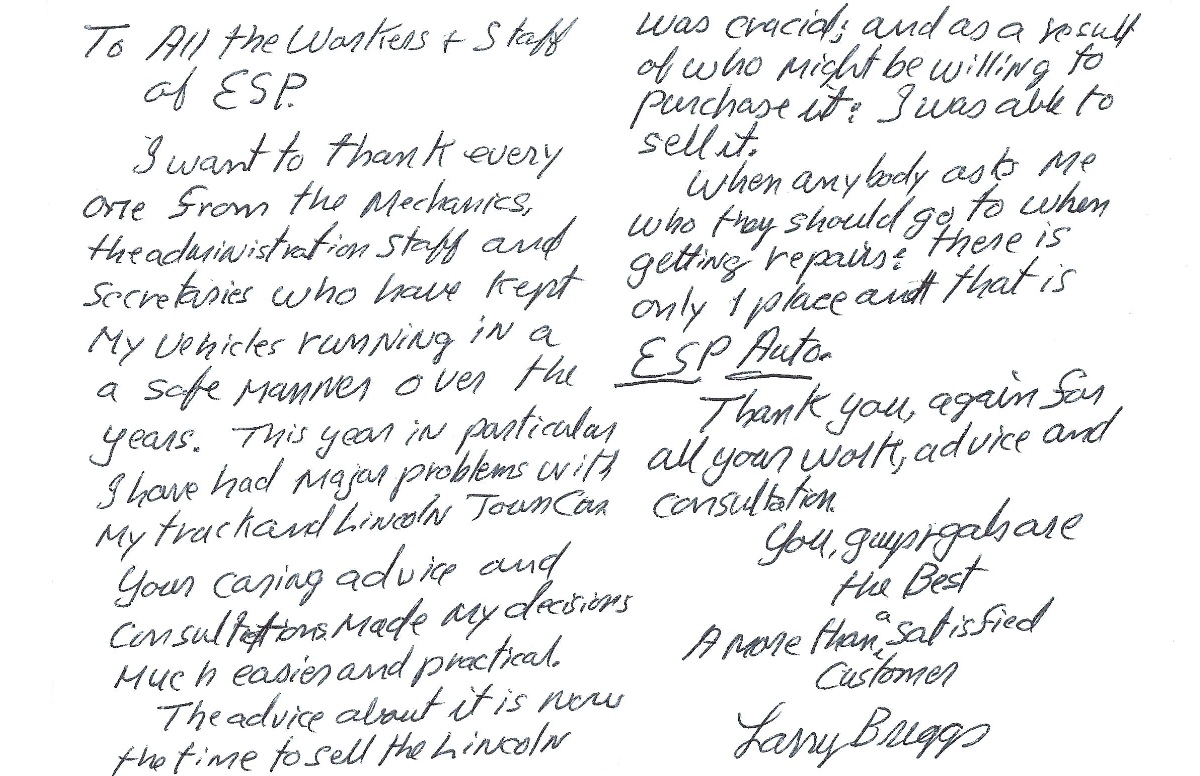 To All the Workers + Staff
of ESP.
I want to thank every
one from the Mechanics,
the administration staff and
Secretaries who have kept
My vehicles running in a
a safe manner over the
years. This year in particular
I have had major problems with
My truck and Lincoln Town Car
Your caring advice and
Consultations made my decisions
Much easier and practical.
The advice about it is now
the time to sell the Lincoln
was crucial; and as a result
of who might be willing to
purchase it: I was able to
sell it.
When anybody asks Me
who they should go to when
getting repairs: there is
only 1 place and that is
ESP Auto.
Thank you, again for
all your work, advice and
consultation.
You, guys + gals are
the Best
A more than a satisfied
Customer
Larry Briggs